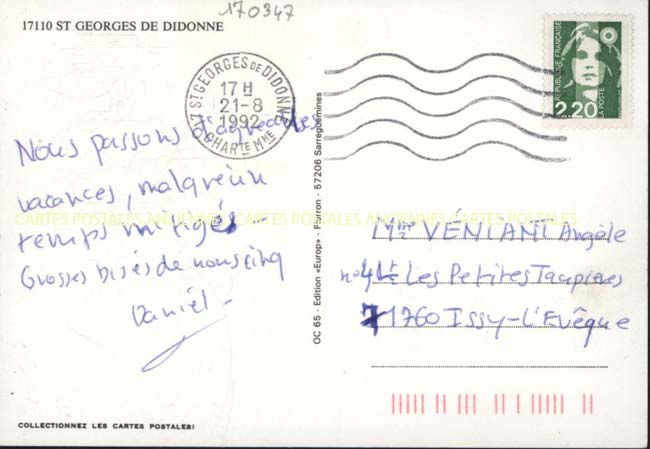 170347
17110 ST GEORGES DE DIDONNE
17 ST GEORGES DE DIDONNE
17 H
21-8
1992
CHARTE MME
RÉPUBLIQUE FRANÇAISE
2,20
LA POSTE
Nous passons d'agréables
vacances, malgré un
temps mitigés -
Grosses bises de nous cinq
Daniel -
CARTES POSTALES ANCIENNES CARTES POSTALES ANCIENNES CARTES POSTALES
OC 65 - Edition «Europ» - Pierron - 57206 Sarreguemines
Mme VÉNIANT Angèle
n°4 Lt Les Petites Taupières
71760 Issy-L'Evêque
COLLECTIONNEZ LES CARTES POSTALES!